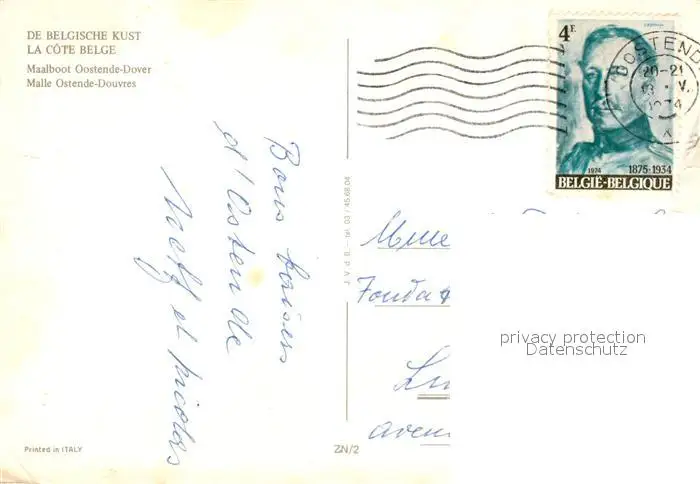 DE BELGISCHE KUST
LA CÔTE BELGE
Maalboot Oostende-Dover
Malle Ostende-Douvres
Bons baisers
d'Ostende
et Nicolas
Printed in ITALY
J. V. d. B. — tel. 03 / 45.68.04
ZN/2
4F.
OOSTEND
20-21
1974
1974 1875-1934
BELGIË-BELGIQUE
Mme
Fonda
aven
privacy protection
Datenschutz